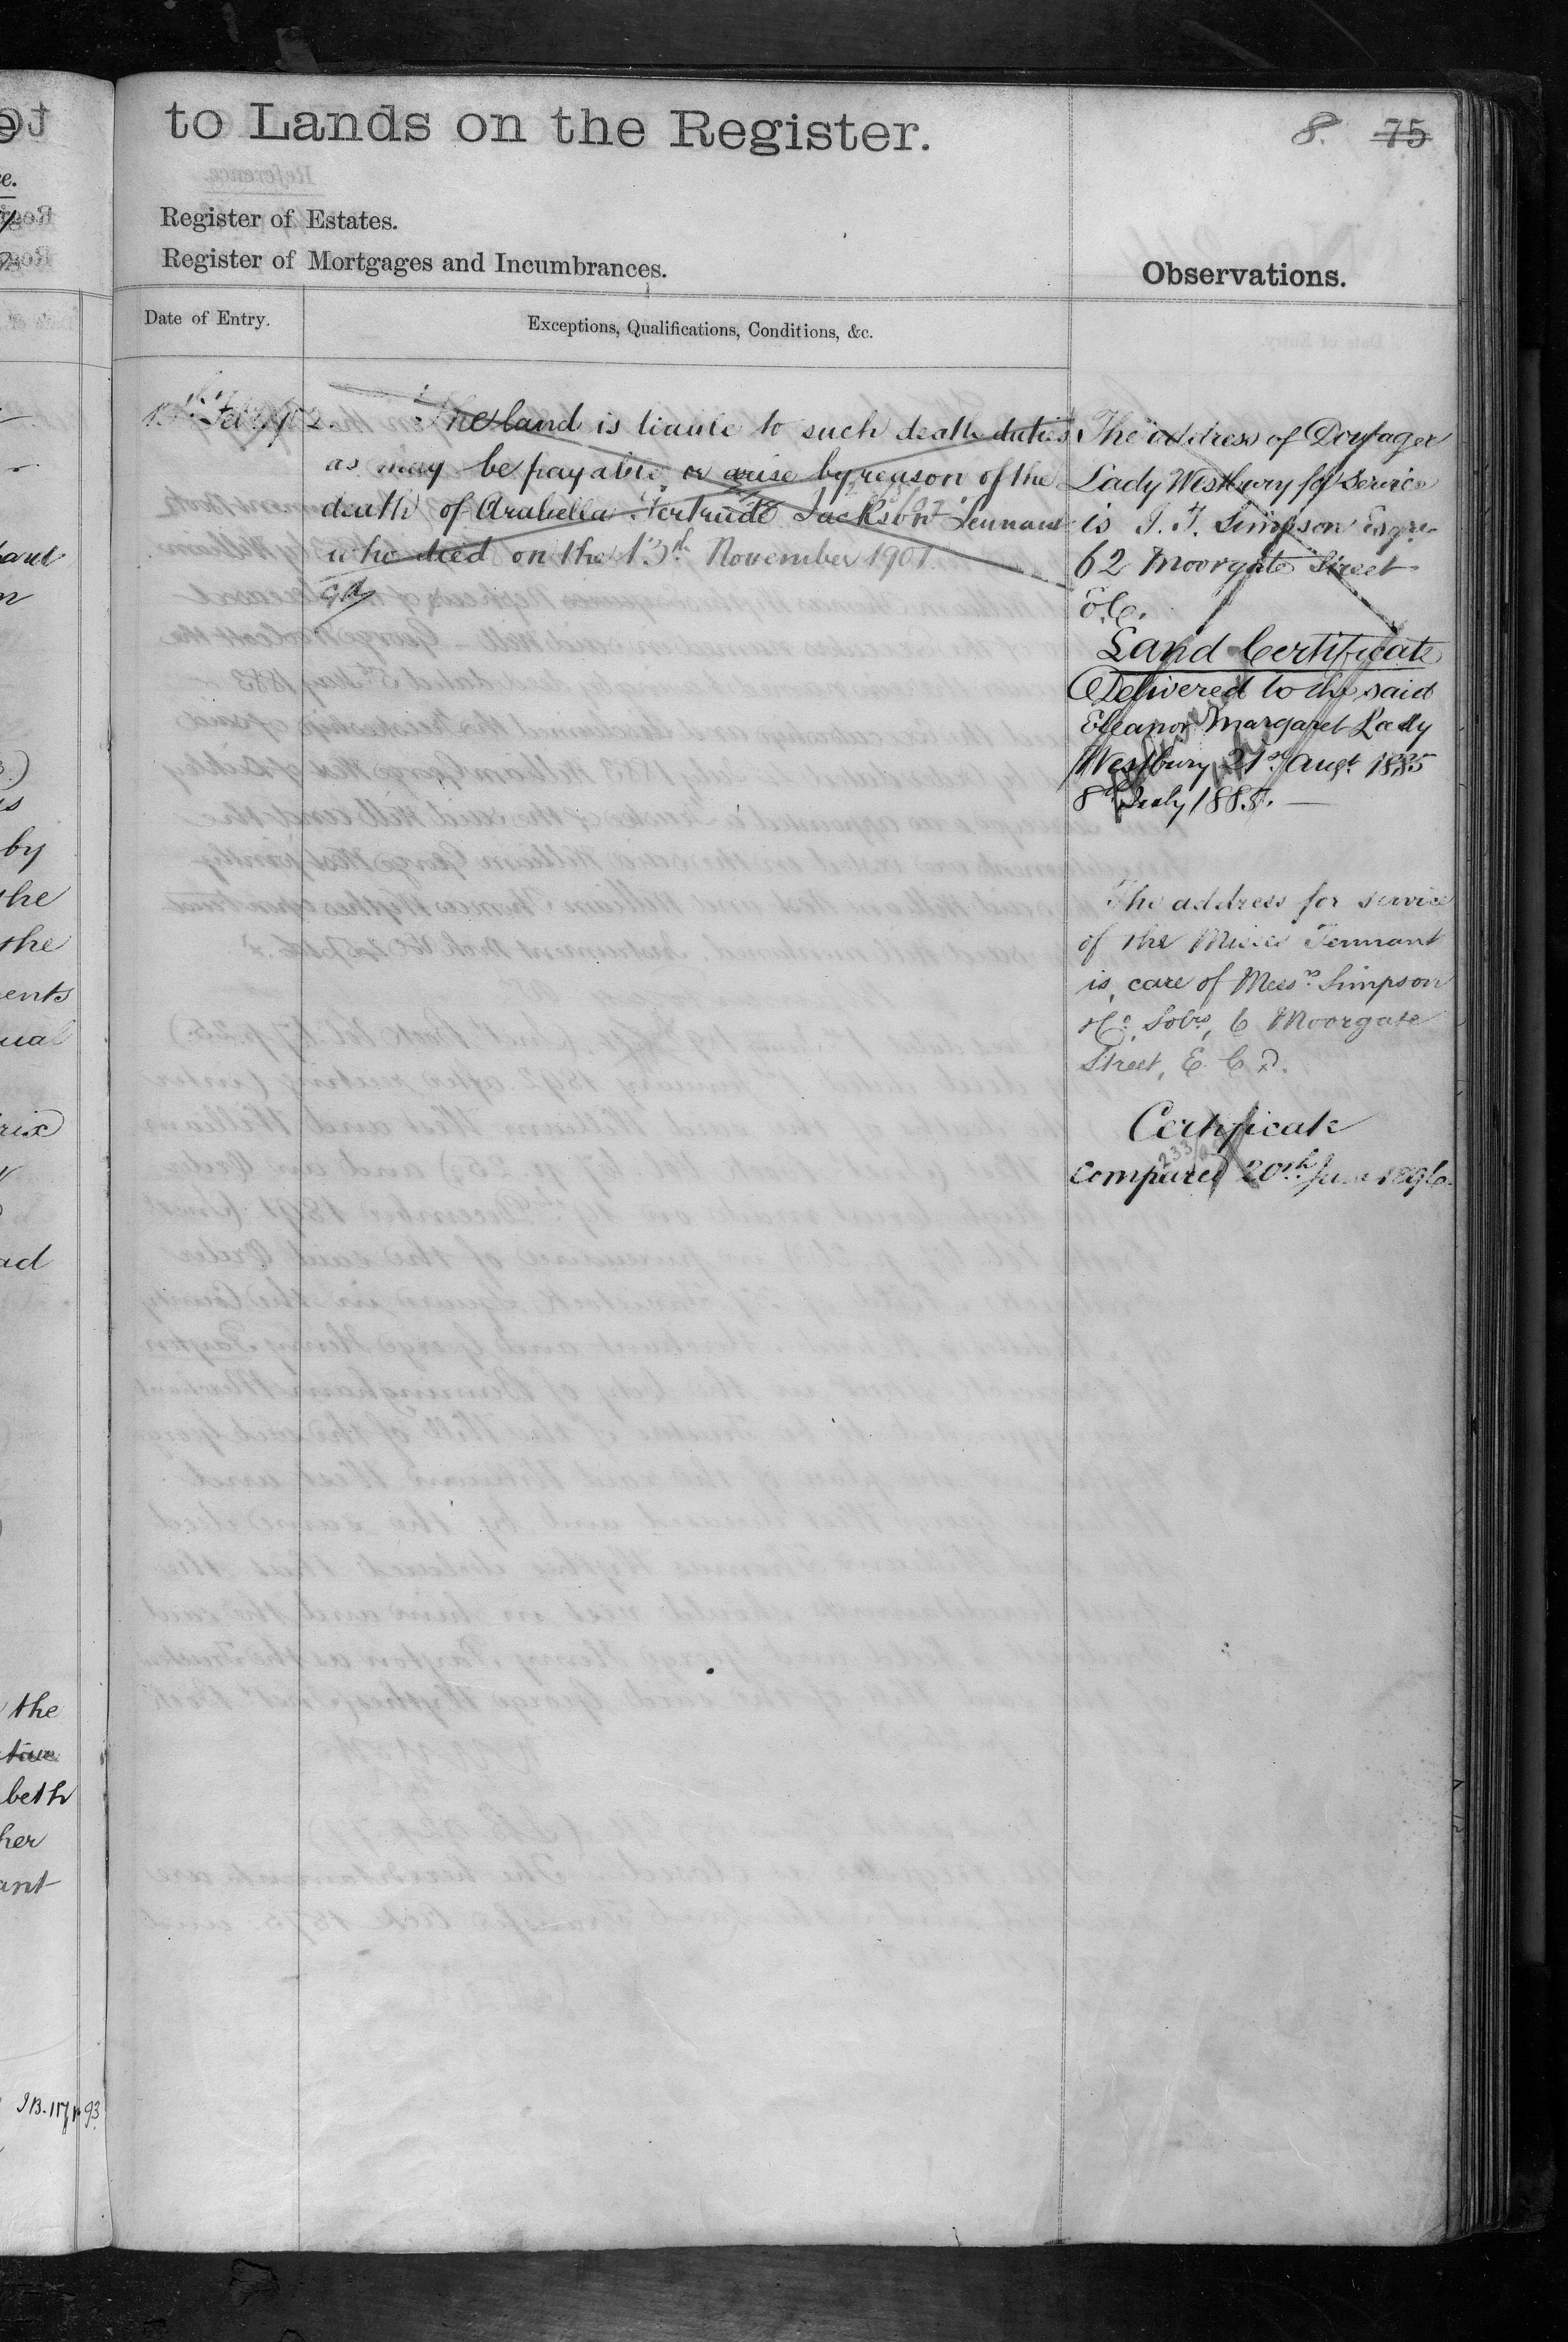 to Lands on the Register.
8. 75
Register of Estates.
Register of Mortgages and Incumbrances.
Observations.
Date of Entry.
Exceptions, Qualifications, Conditions, &c.
Feb 1902.
The land is liable to such death duties
as may be payable or arise by reason of the
death of Arabella Gertrude Jackson Tennant
who died on the 13th November 1901.
The address of Dowager
Lady Westbury for Service
is J. F. Simpson Esqre
62 Moorgate Street
E.C.
Land Certificate
Delivered to the said
Eleanor Margaret Lady
Westbury 21st Augt 1885
8th July 1885.
The address for service
of the Misses Tennant
is, care of Messrs Simpson
& Co. Solrs, 6 Moorgate
Street, E. C.
Certificate
Compared 20th June 1896.
ant
n
by
the
the
ents
ual
rix
ad
the
beth
her
ant